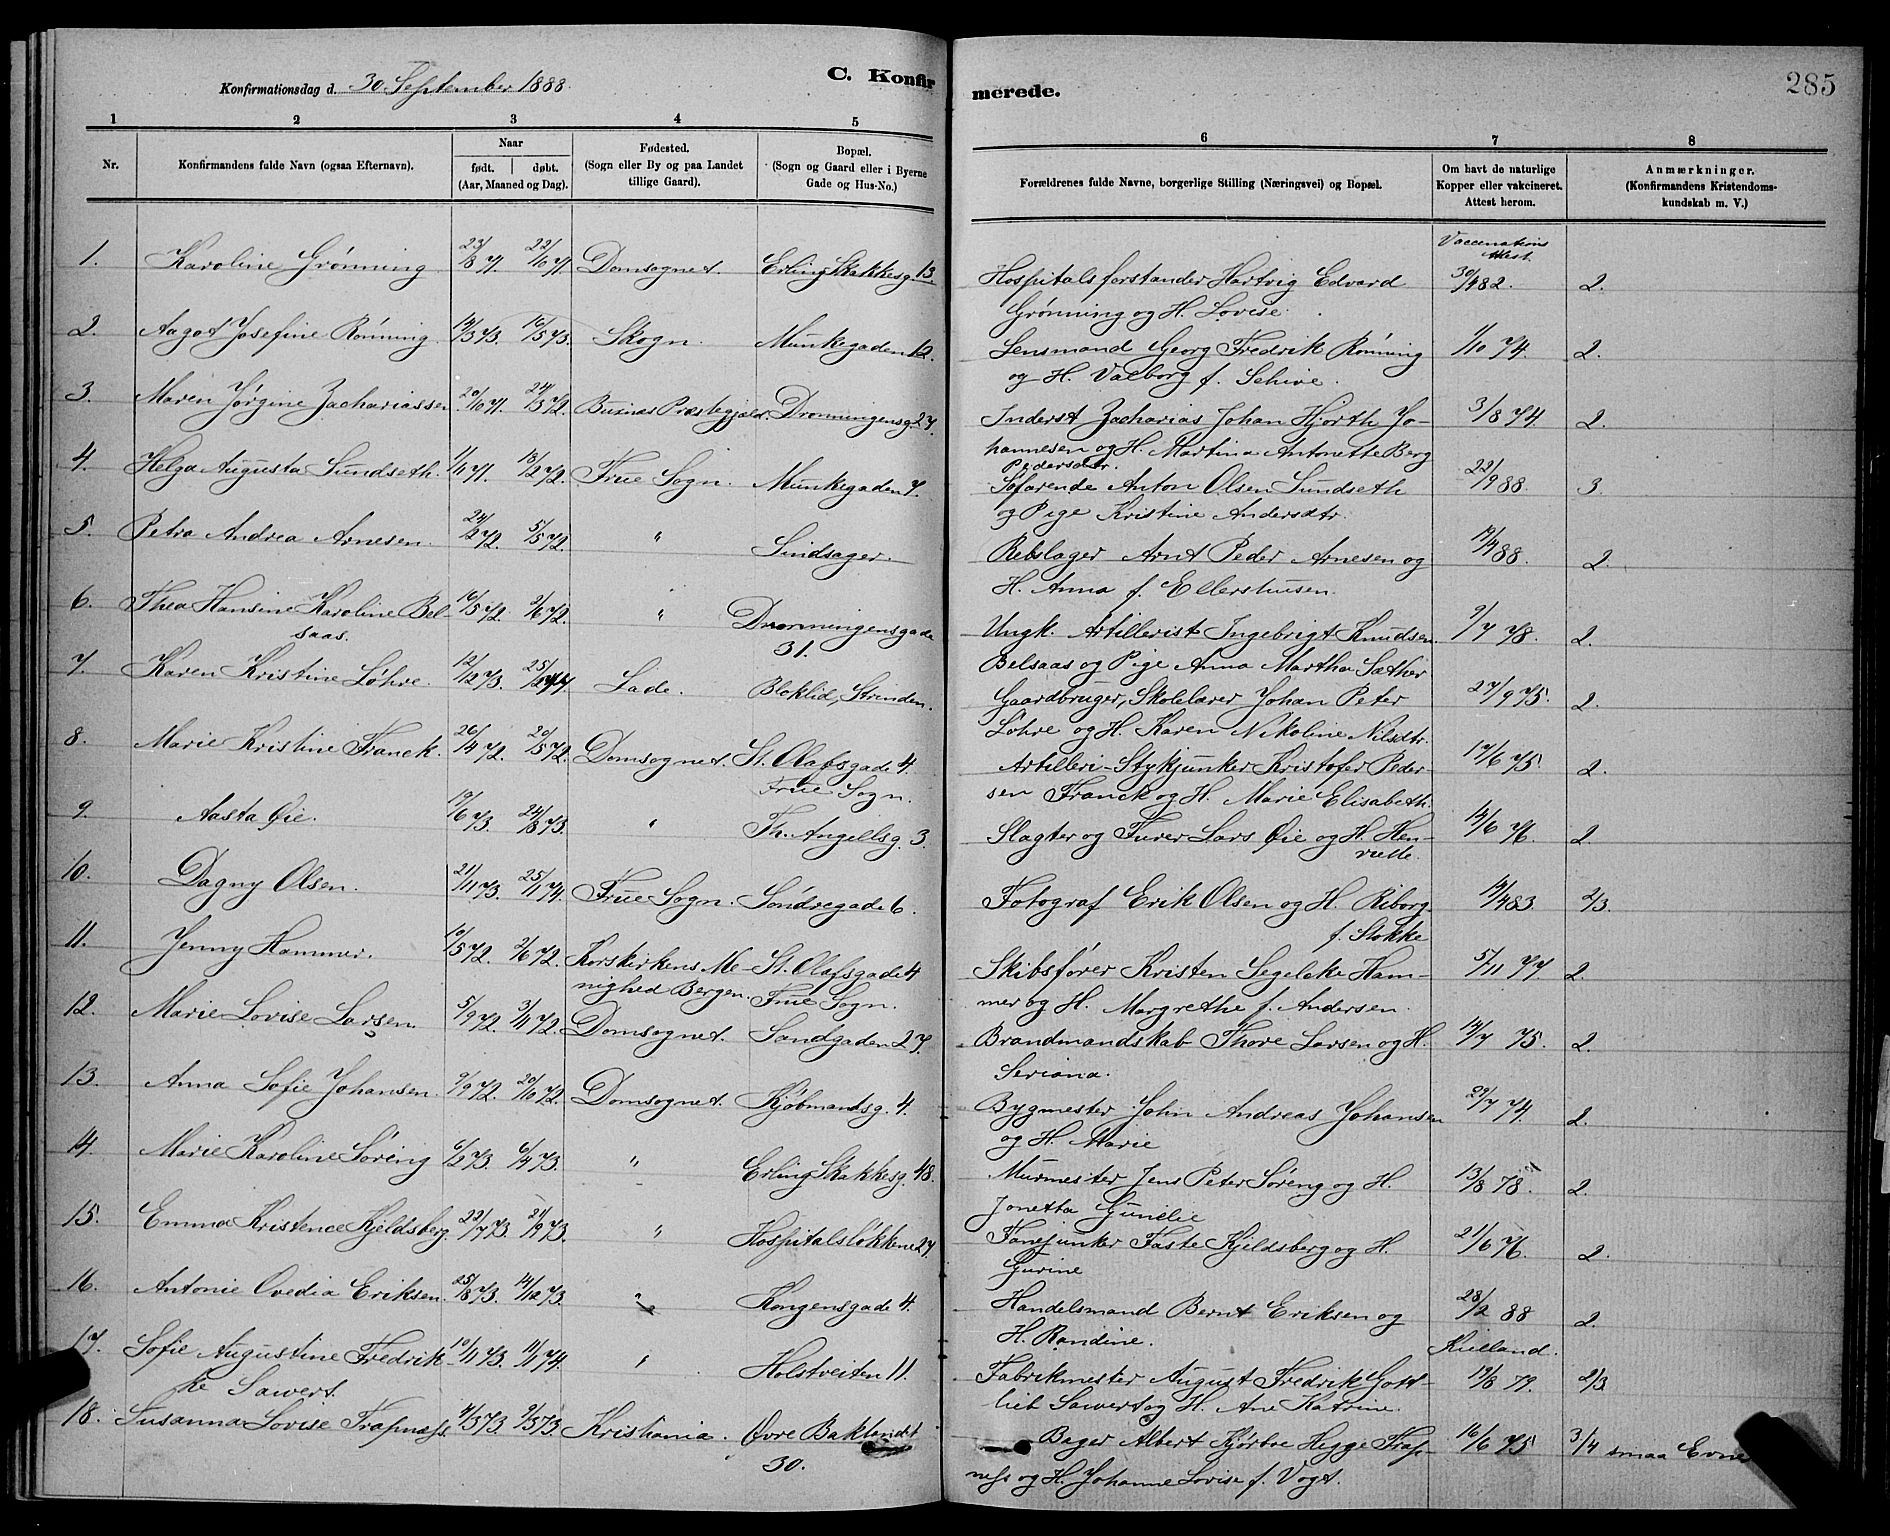 Konfirmationsdag d. 30 September 1888.
C. Konfirmerede.
285
1 2 3 4 5 6 7 8
Nr.
Konfirmandens fulde Navn (ogsaa Efternavn).
Naar
født. døbt.
(Aar, Maaned og Dag).
Fødested.
(Sogn eller By og paa Landet
tillige Gaard).
Bopæl.
(Sogn og Gaard eller i Byerne
Gade og Hus-No.)
Forældrenes fulde Navne, borgerlige Stilling (Næringsvei) og Bopæl.
Om havt de naturlige
Kopper eller vakcineret.
Attest herom.
Anmærkninger.
(Konfirmandens Kristendoms-
kundskab m. V.)
Vaccinations
Attest
1. Karoline Grønning 23/8 71. 22/10 71. Domsognet. Erling Skakkesg. 13. Hospitalsforstander Hartvig Edvard 30/4 82. 2.
Grønning og H. Lovise.
2. Aagot Josefine Rønning. 14/3 73. 16/5 73. Skogn. Munkegaden 12. Lensmand Georg Fredrik Rønning 1/10 74. 2.
og H. Valborg f. Schive.
3. Maren Jørgine Zachariassen 20/10 71. 24/3 72. Præstegjeld. Dronningensg. 27. Inderst Zacharias Johan Hjorth Jo- 3/8 74. 2.
hannesen og H. Martina Antonette Berg
Pedersdtr.
4. Helga Augusta Sundseth. 1/11 71. 18/2 72. Frue Sogn. Munkegaden 7. Søfarende Anton Olsen Sundseth 22/9 88. 3.
og Pige Kristine Andersdtr.
5. Petra Andrea Arnesen. 24/2 72. 5/5 72. " Lindsager. Rebslager Arnt Peder Arnesen og 12/4 88. 2.
H. Anna f. Ellershusen.
6. Thea Hansine Karoline Bel- 16/5 72. 2/6 72. " Dronningensgade Ungk. Artillerist Ingebrigt Knudsen 9/7 78. 2.
saas. 31. Belsaas og Pige Anna Martha Sæther
7. Karen Kristine Løhre. 12/12 73. 25/2 74. Lade. Bloklid, Strinden. Gaardbruger, Skolelærer Johan Peter 27/9 75. 2.
Løhre og H. Karen Nikoline Nilsdtr.
8. Marie Kristine Franck. 26/4 72. 20/5 72. Domsognet. St. Olafsgade 4. Artilleri-Stykjunker Kristofer Peder- 17/6 75 2.
Frue Sogn. sen Franck og H. Marie Elisabeth.
9. Aasta Øie. 19/6 73. 24/8 73. " Th. Angellsg. 3. Slagter og Furer Lars Øie og H. Hen- 14/6 76. 2.
riette.
10. Dagny Olsen. 21/11 73. 25/1 74. Frue Sogn. Søndregade 6. Fotograf Erik Olsen og H. Riborg 19/4 83. 2/3.
f. Stokke
11. Jenny Hammer. 10/5 72. 2/6 72. Korskirkens Me- St. Olafsgade 4 Skibsfører Kristen Segelcke Ham- 5/11 77 2.
nighed Bergen. Frue Sogn. mer og H. Margrethe f. Andersen.
12. Marie Lovise Larsen. 5/9 72. 3/11 72. Domsognet. Sandgaden 27. Brandmandskab Thore Larsen og H. 14/7 75. 2.
Seriana.
13. Anna Sofie Johansen. 9/9 72. 20/10 72. Domsognet. Kjøbmandsg. 4. Bygmester John Andreas Johansen 29/7 74. 2.
og H. Marie
14. Marie Karoline Søreng 6/2 73. 6/4 73. " Erling Skakkesg. 48. Murmester Jens Peter Søreng og H. 13/8 78. 2.
Jonetta Gunelie
15. Emma Kristence Kjeldsberg 22/7 73. 21/9 73. " Hospitalsløkkene 27. Fanejunker Faste Kjeldsberg og H. 21/6 76. 2.
Gurine
16. Antonie Ovedia Eriksen. 25/8 73. 14/12 73. " Kongensgade 4. Handelsmand Bernt Eriksen og 28/2 88 2.
H. Randine. Kielland.
17. Sofie Augustine Fredrik- 10/11 73. 11/1 74. " Holstveiten 11. Fabrikmester August Fredrik Gott- 19/8 79. 2/3.
ke Sawert. lieb Sawert og H. Ane Katrine.
18. Susanna Lovise Trapness 4/3 73. 9/3 73 Kristiania. Øvre Baklandet Bager Albert Kjørbre Hegge Trap- 16/6 75 3/4 smaa Evne
30. ness og H. Johanne Lovise f. Vogt.